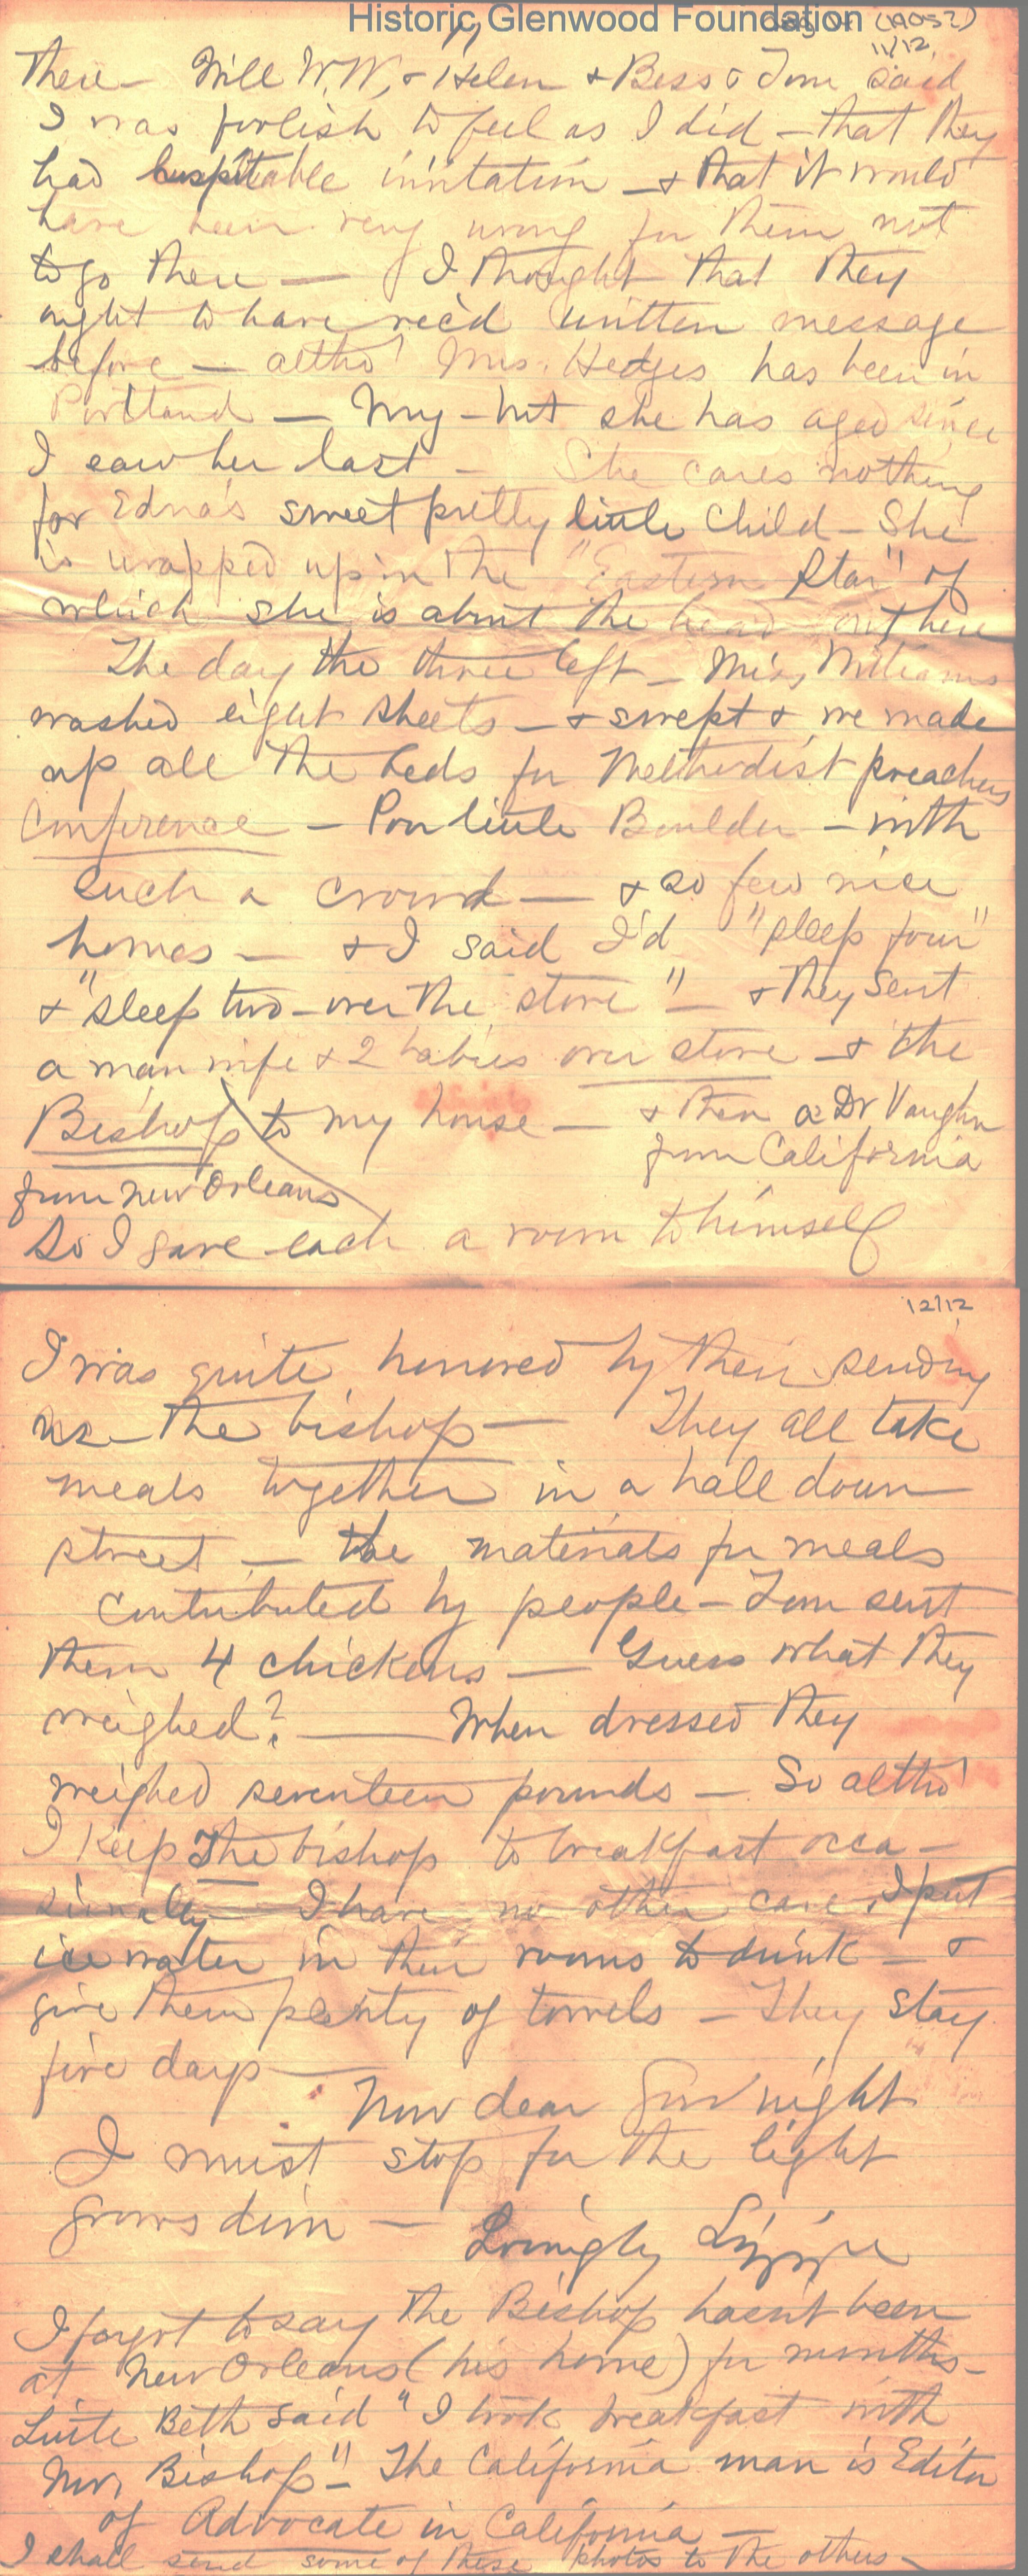 Historic Glenwood Foundation
(1905?)
11
11/12
There — Will W.W, + Helen + Bess & Tom said
I was foolish to feel as I did — that they
had hospitable invitation — + that it would
have been very wrong for them not
to go there — I thought that they
ought to have rec'd written message
before — altho' Mrs. Hedges has been in
Portland — My - but she has aged since
I saw her last — She cares nothing
for Edna's sweet pretty little child — She
is wrapped up in the "Eastern Star" of
which she is about the head out here
The day the three left — Miss Williams
washed eight sheets — + swept + we made
up all the beds for Methodist preachers
Conference — Poor little Boulder — with
such a crowd — + so few nice
homes — + I said I'd "sleep four"
+ "sleep two - over the store" — + they sent
a man wife + 2 babies over store — + the
Bishop to my house — + then a Dr Vaughn
from California
from New Orleans
So I gave each a room to himself
12/12
I was quite honored by their sending
me the bishop — They all take
meals together in a hall down
street — the materials for meals
contributed by people — Tom sent
them 4 chickens — Guess what they
weighed? — When dressed they
weighed seventeen pounds — So altho'
I keep the bishop to breakfast occa-
sionaley — I have no other care, I put
ice water in their rooms to drink — +
give them plenty of towels — They stay
five days —
Now dear Good night
I must stop for the light
grows dim — Lovingly Lizzie
I forgot to say the Bishop hasn't been
at New Orleans (his home) for months —
Little Beth said "I took breakfast with
Mr. Bishop" — The California man is Editor
of Advocate in California —
I shall send some of these photos to the others —